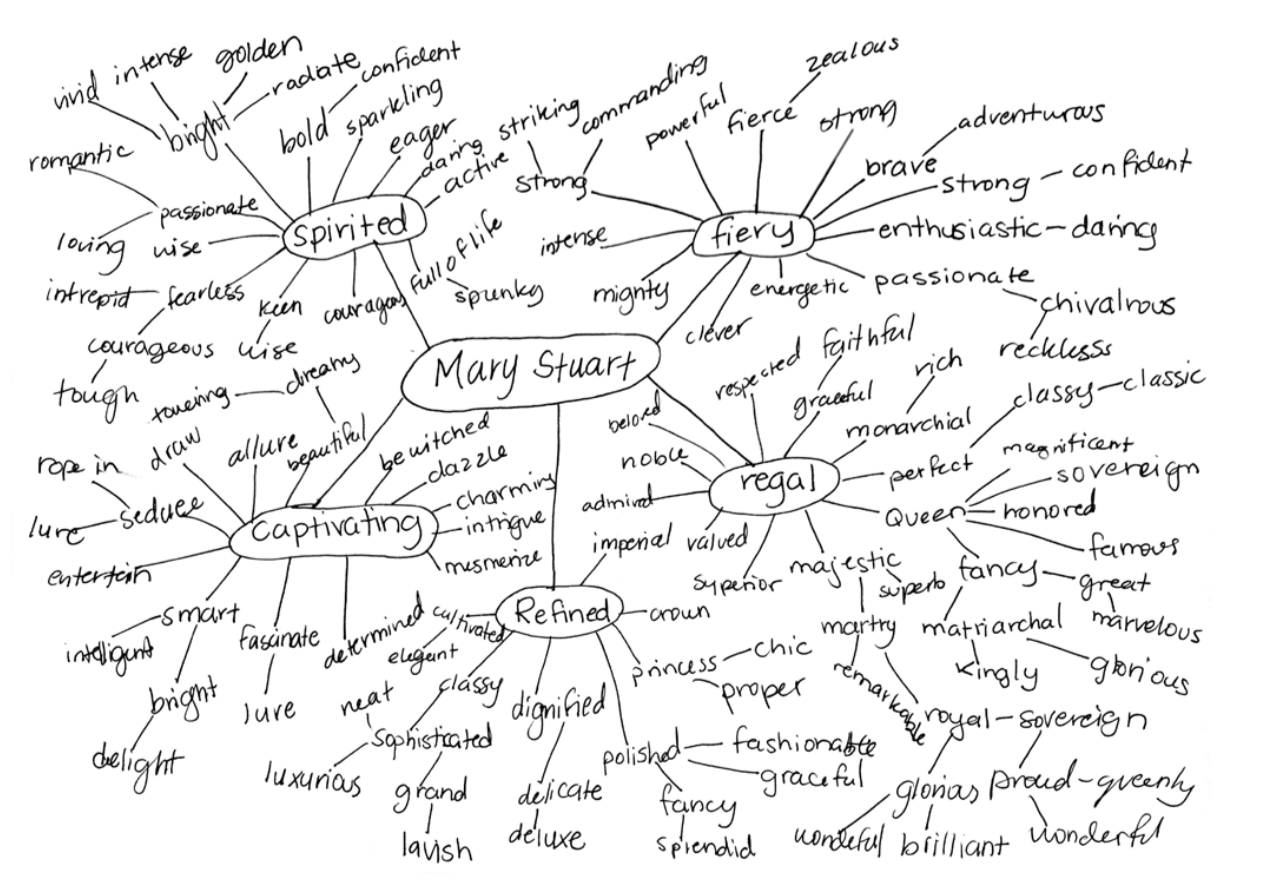 vivid intense golden
radiate confident
bright
bold sparkling
eager
daring
active
romantic
passionate
loving wise
Spirited
intrepid fearless
courageous
tough
keen
wise
couragous
full of life
spunky
striking commanding
strong
powerful
fierce
zealous
strong
brave
adventurous
strong confident
fiery
intense
mighty
clever
energetic
enthusiastic daring
passionate
chivalrous
recklesss
Mary Stuart
toueing dreamy
rope in
draw
allure
beautiful
bewitched
dazzle
charming
intrigue
mesmerize
lure seduce
Captivating
entertein
smart
intelligent
bright
delight
fasinate
lure
determined
beloved
respected
faithful
graceful
rich
monarchial
classy classic
perfect
noble
regal
admiral
valved
superior
majestic
superb
Queen
magnificent
sovereign
honored
famous
fancy great
marvelous
matriarchal
kingly
glorious
martry
remarkable
royal sovereign
glorias proud queenly
wondeful brilliant wonderful
imperial
Refined
crown
cultivated
elegent
classy
neat
Sophisticated
luxurias
grand
lavish
dignified
delicate
deluxe
princess chic
proper
polished fashionable
graceful
fancy
splendid